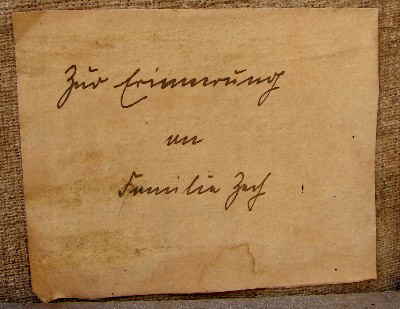 Zur Erinnerung
an
Familie Zech